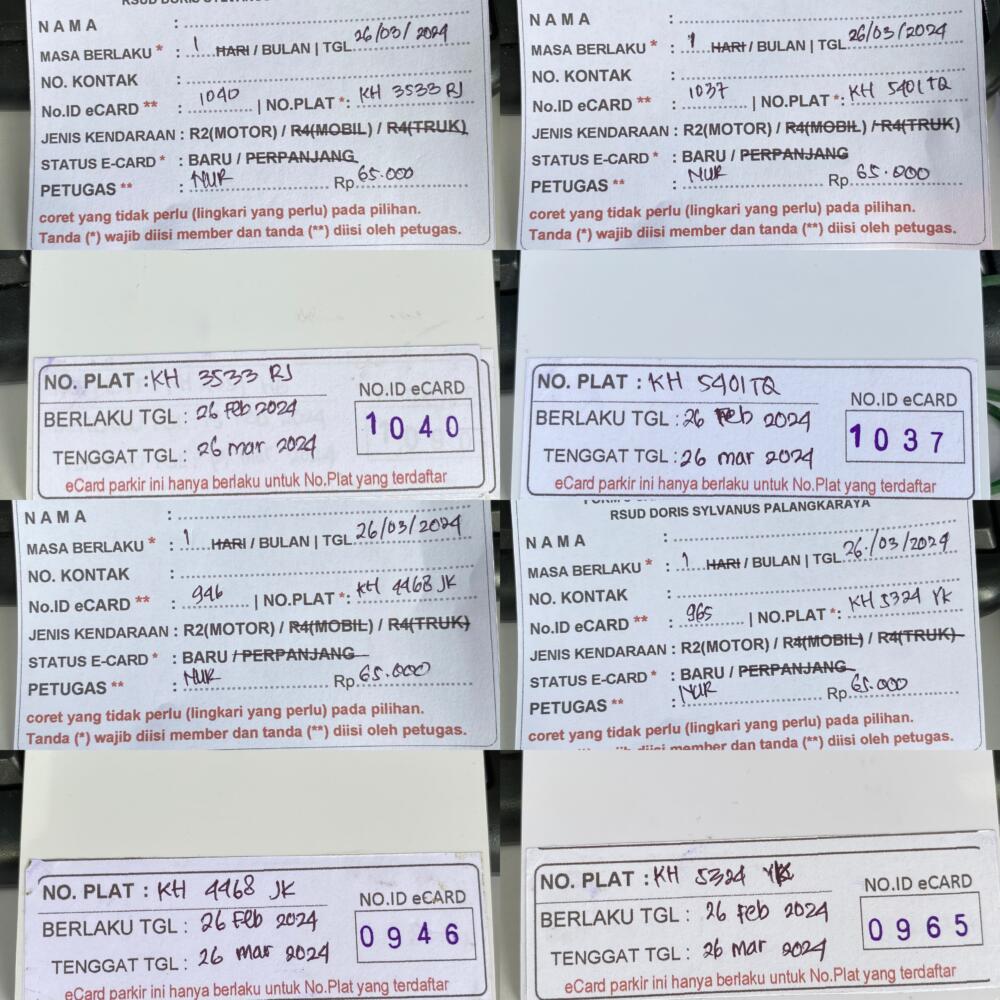 NAMA :
MASA BERLAKU * : 1 HARI / BULAN | TGL 26/03/2024
NO. KONTAK :
No.ID eCARD ** : 1040 | NO.PLAT *: KH 3533 RJ
JENIS KENDARAAN : R2(MOTOR) / R4(MOBIL) / R4(TRUK)
STATUS E-CARD * : BARU / PERPANJANG
PETUGAS ** : NUR Rp. 65.000
coret yang tidak perlu (lingkari yang perlu) pada pilihan.
Tanda (*) wajib diisi member dan tanda (**) diisi oleh petugas.
NAMA :
MASA BERLAKU * : 1 HARI / BULAN | TGL 26/03/2024
NO. KONTAK :
No.ID eCARD ** : 1037 | NO.PLAT *: KH 5401 TQ
JENIS KENDARAAN : R2(MOTOR) / R4(MOBIL) / R4(TRUK)
STATUS E-CARD * : BARU / PERPANJANG
PETUGAS ** : NUR Rp. 65.000
coret yang tidak perlu (lingkari yang perlu) pada pilihan.
Tanda (*) wajib diisi member dan tanda (**) diisi oleh petugas.
NO. PLAT : KH 3533 RJ
NO.ID eCARD
BERLAKU TGL : 26 Feb 2024
1040
TENGGAT TGL : 26 mar 2024
eCard parkir ini hanya berlaku untuk No.Plat yang terdaftar
NO. PLAT : KH 5401 TQ
NO.ID eCARD
BERLAKU TGL : 26 Feb 2024
1037
TENGGAT TGL : 26 mar 2024
eCard parkir ini hanya berlaku untuk No.Plat yang terdaftar
NAMA :
MASA BERLAKU * : 1 HARI / BULAN | TGL 26/03/2024
NO. KONTAK :
No.ID eCARD ** : 946 | NO.PLAT *: KH 4468 JK
JENIS KENDARAAN : R2(MOTOR) / R4(MOBIL) / R4(TRUK)
STATUS E-CARD * : BARU / PERPANJANG
PETUGAS ** : NUR Rp. 65.000
coret yang tidak perlu (lingkari yang perlu) pada pilihan.
Tanda (*) wajib diisi member dan tanda (**) diisi oleh petugas.
RSUD DORIS SYLVANUS PALANGKARAYA
NAMA :
MASA BERLAKU * : 1 HARI / BULAN | TGL 26/03/2024
NO. KONTAK :
No.ID eCARD ** : 965 | NO.PLAT *: KH 5324 YK
JENIS KENDARAAN : R2(MOTOR) / R4(MOBIL) / R4(TRUK)
STATUS E-CARD * : BARU / PERPANJANG
PETUGAS ** : NUR Rp. 65.000
coret yang tidak perlu (lingkari yang perlu) pada pilihan.
diisi member dan tanda (**) diisi oleh petugas.
NO. PLAT : KH 4468 JK
NO.ID eCARD
BERLAKU TGL : 26 Feb 2024
0946
TENGGAT TGL : 26 mar 2024
eCard parkir ini hanya berlaku untuk No.Plat yang terdaftar
NO. PLAT : KH 5324 YK
NO.ID eCARD
BERLAKU TGL : 26 Feb 2024
0965
TENGGAT TGL : 26 mar 2024
eCard parkir ini hanya berlaku untuk No.Plat yang terdaftar